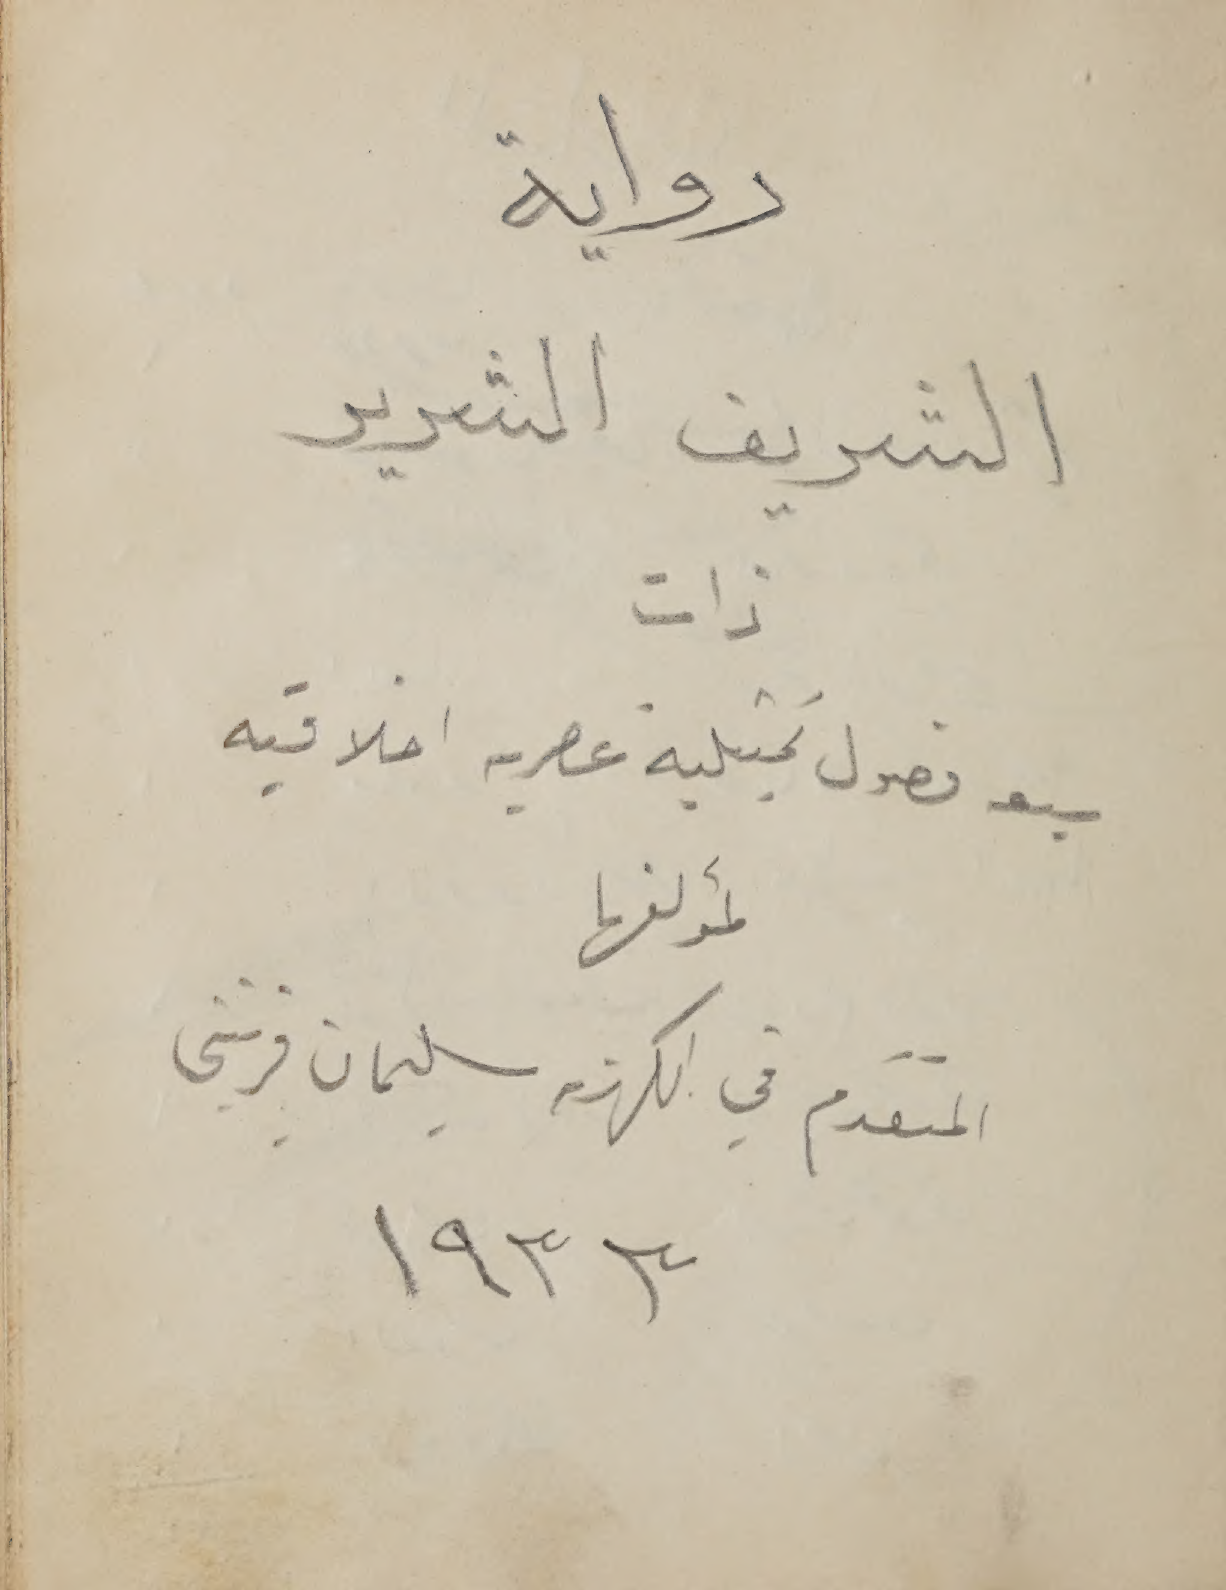 رواية
الشريف الشرير
ذات
سبع فصول تمثيلية عصريه اخلاقيه
لمؤلفها
المتقدم في الكهنه سليمان فرنيني
١٩٣٣